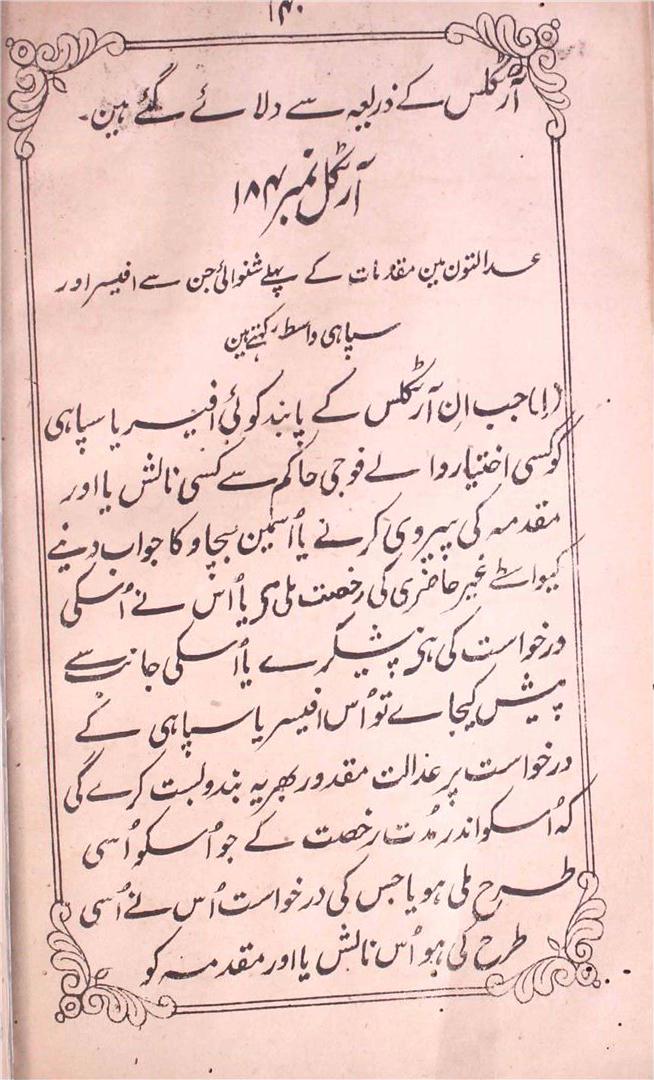 ۱۴۰
آرٹکلس کے ذریعہ سے دلائے گئے ہین۔
آرٹکل نمبر ۱۸۴
عدالتون مین مقدمات کے پہلے شنوائی جن سے افیسر اور
سپاہی واسطہ رکہتے ہین
(۱) جب اِن آرٹکلس کے پابند کوئی افیسر یا سپاہی
کو کسی اختیار والے فوجی حاکم سے کسی نالش یا اور
مقدمہ کی پیروی کرنے یا اُسمین بچاو کا جواب دینے
کیواسطے غیر حاضری کی رخصت ملی ہی یا اُس نے اُسکی
درخواست کی ہی پیشکرے یا اُسکی جانب سے
پیش کیجاے تو اُس افیسر یا سپاہی کے
درخواست پر عدالت مقدور بھر یہ بندوبست کرے گی
کہ اُسکو اندر مُدت رخصت کے جو اُسکو اُسی
طرح ملی ہو یا جس کی درخواست اُس نے اُسی
طرح کی ہو اُس نالش یا اور مقدمہ کو